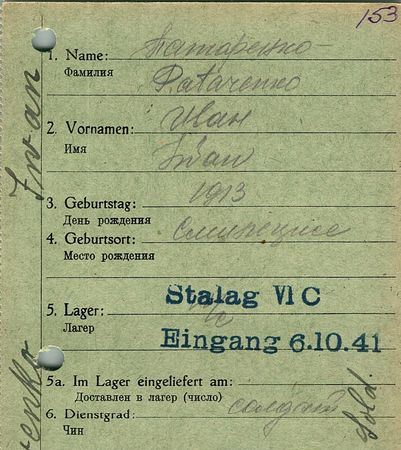 153
1. Name: Татаренко
Фамилия
2. Vornamen: Иван
Имя
Iwan
3. Geburtstag: 1913
День рождения
4. Geburtsort:
Место рождения
5. Lager:
Лагер
Stalag VI C
Eingang 6.10.41
5a. Im Lager eingeliefert am:
Доставлен в лагер (число)
6. Dienstgrad: солдат
Чин
Iwan
enko
Sold.